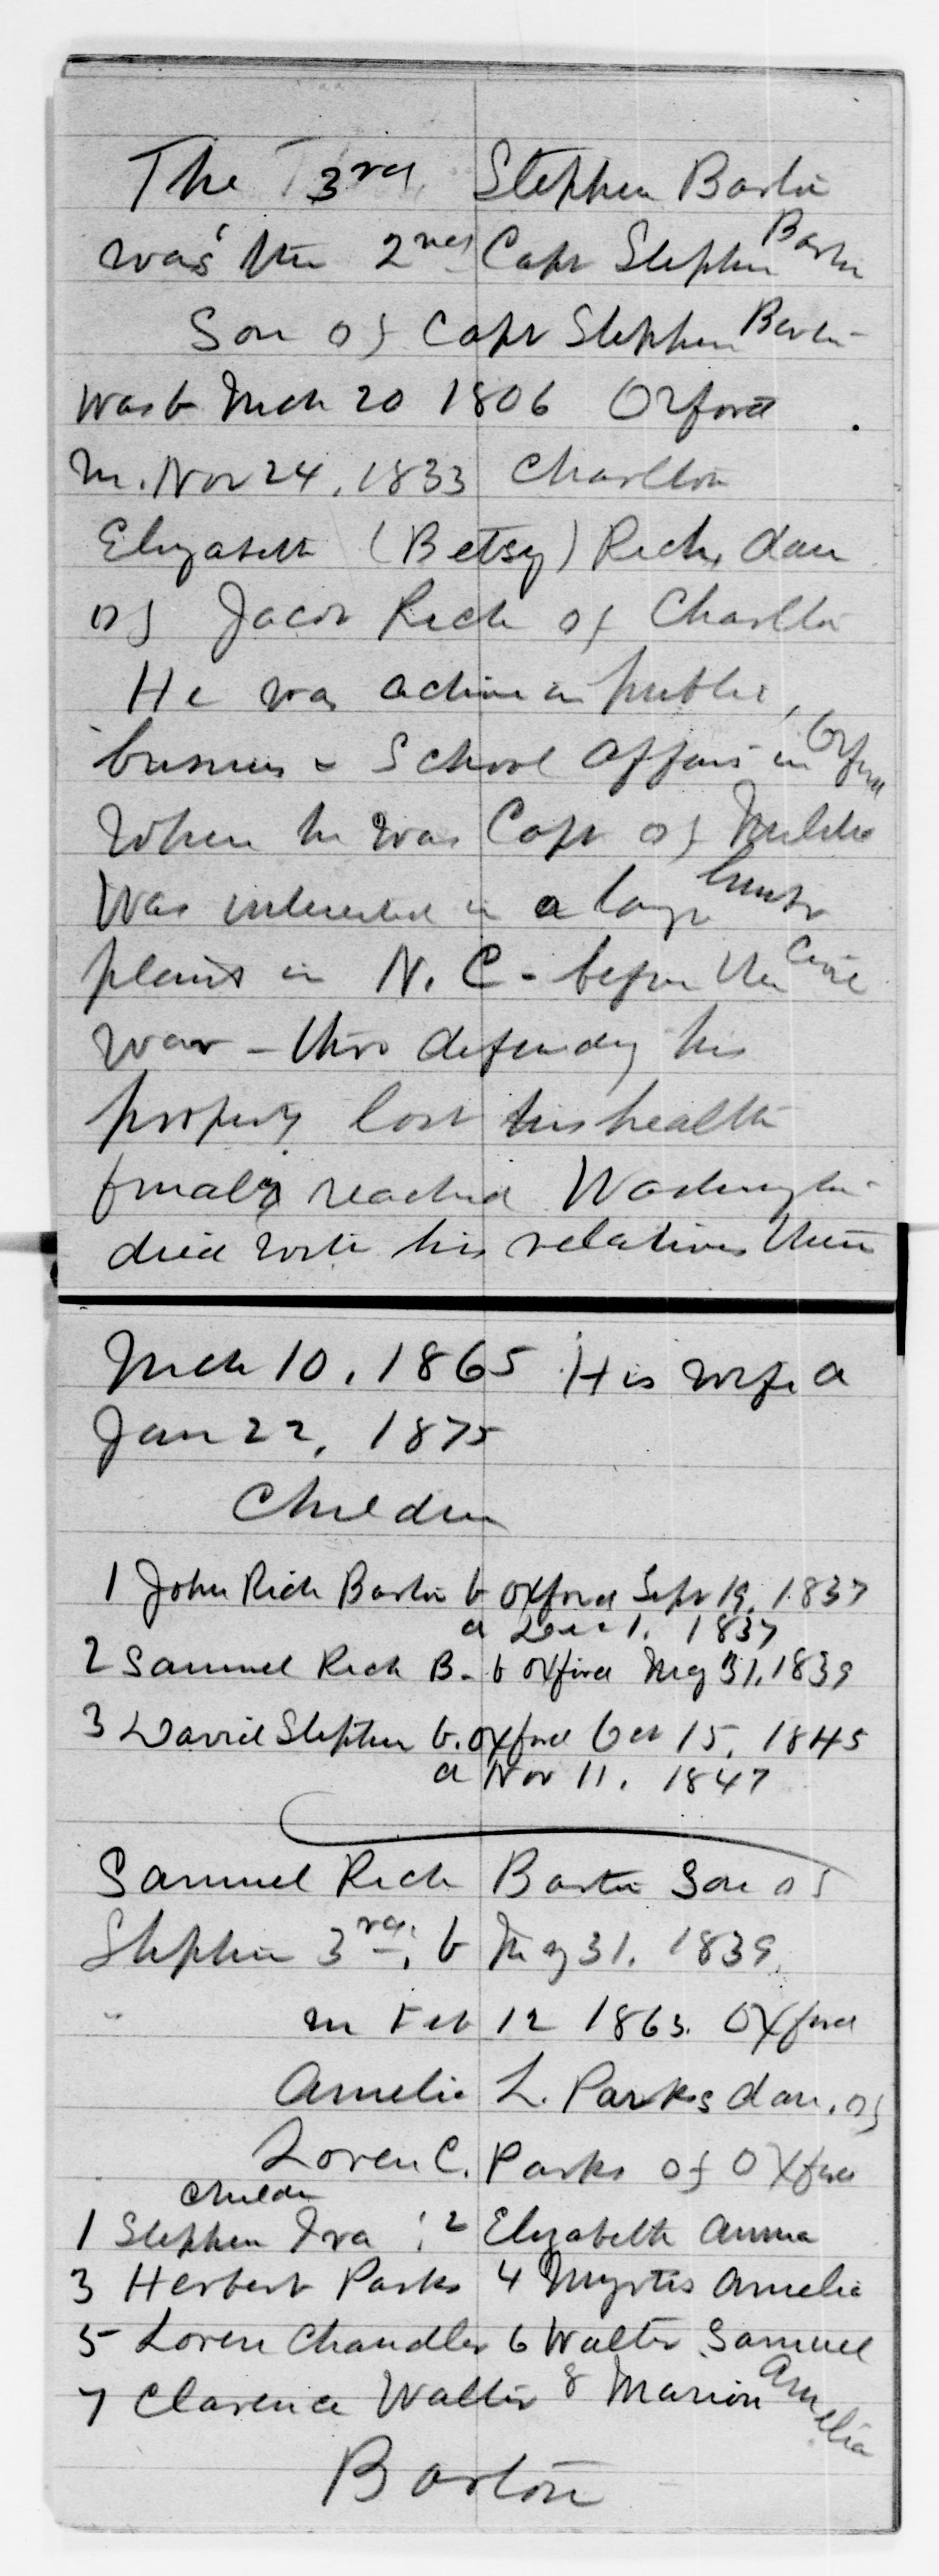 The 3rd Stephen Barton
was the 2nd Capt Stephen Barton
Son of Capt Stephen Barton
was b Mch 20 1806 Oxford
m. Nov 24, 1833 Charlton
Elizabeth (Betsy) Rich, dau
of Jacob Rich of Charlton
He was active in public,
business & School affairs in Oxford
When he was Capt of Militia
Was interested in a large
plant in N. C - before the Civil
war - thro defending his
property lost his health
finally reached Washington
died with his relatives there
Mch 10, 1865 His wife d
Jan 22, 1875
Children
1 John Rich Barton b Oxford Sept 19, 1837
d Dec 1, 1837
2 Samuel Rich B- b Oxford May 31, 1839
3 David Stephen b. Oxford Oct 15, 1845
d Nov 11, 1847
Samuel Rich Barton Son of
Stephen 3rd, b May 31, 1839
m Feb 12 1863. Oxford
Amelia L. Parks dau. of
Loren C. Parks of Oxford
Children
1 Stephen Ira ; 2 Elizabeth Anna
3 Herbert Parks 4 Myrtis Amelia
5 Loren Chandler 6 Walter Samuel
7 Clarence Walter 8 Marion Amelia
Barton